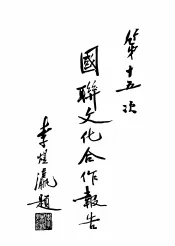 第十五次
國聯文化合作報告
李煜瀛題